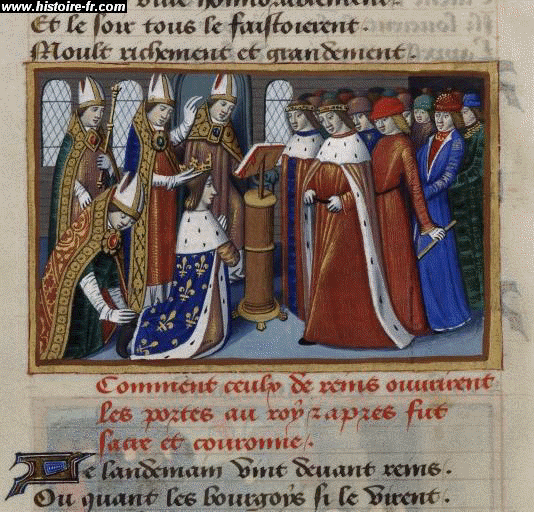 www.histoire-fr.com
Et le soir tous le faistoierent.
Moult richement et grandement.
Comment ceulx de reins ouvrirent
les portes au roy z apres fut
sacre et couronne.
Le landemain vint devant reins.
Ou quant les bourgoys si le virent.